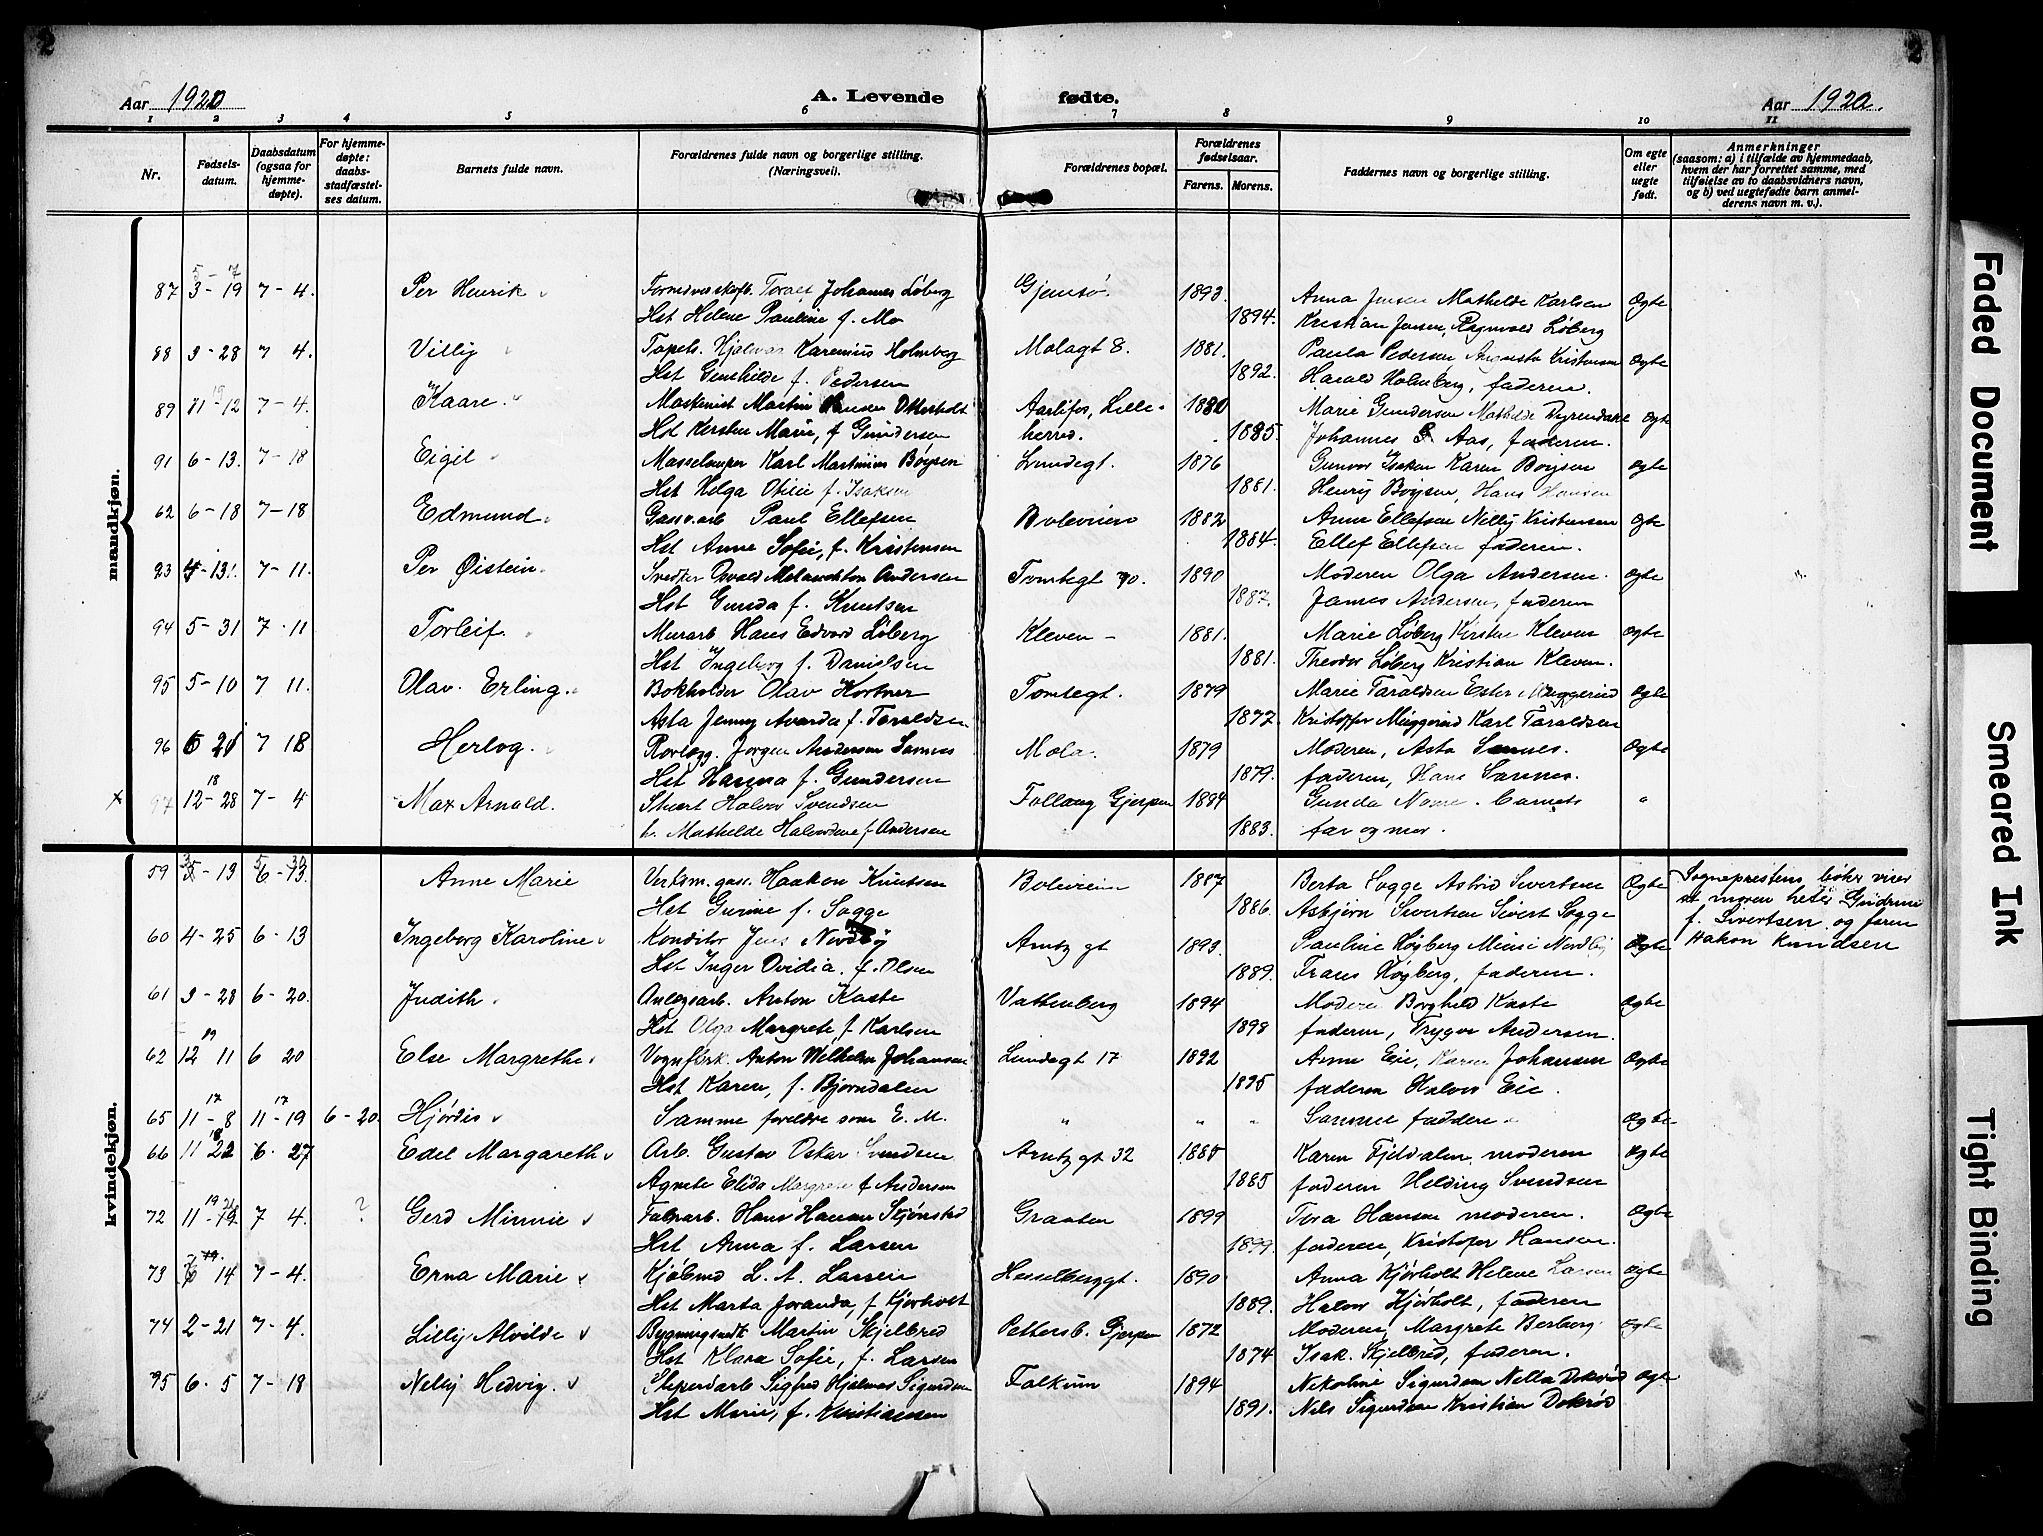 2
2
Aar 1920
A. Levende
fødte.
Aar 1920.
1 2 3 4 5 6 7 8 9 10 11
Nr.
Fødsels-
datum.
Daabsdatum
(ogsaa for
hjemme-
døpte).
For hjemme-
døpte:
daabs-
stadfæstel-
ses datum.
Barnets fulde navn.
Forældrenes fulde navn og borgerlige stilling.
(Næringsvei).
Forældrenes bopæl.
Forældrenes
fødselsaar.
Farens. Morens.
Faddernes navn og borgerlige stilling.
Om egte
eller
uegte
født.
Anmerkninger
(saasom: a) i tilfælde av hjemmedaab,
hvem der har forrettet samme, med
tilføielse av to daabsvidners navn,
og b) ved uegtefødte barn anmel-
derens navn m. v.).
mandkjøn.
87 3-19 7-4. Per Henrik Johannes Löberg Gjemsö. 1893. Anna Jensen Mathilde Karlsen Ogte
Hst Helene Pauline f. Mo 1894. Kristian Jensen, Ragnvald Löberg
88 9-28 7 4. Villy Tapets. Hjalmar Karenius Holmberg Molagt 8. 1881. Paula Pedersen Augusta Kristensen Ogte
Hst f. Pedersen 1892. Harald Holmberg, faderen.
89 11-12 7-4. Kaare Maskinist Martin Otterholt Aarlifos, Lille- Marie Gundersen Mathilde Ogte
Hst Kirsten Marie, f Gundersen herred. 1885. Johannes Aas, faderen.
91 6-13. 7-18 Eigil Karl Martinius Böysen Lundegt. 1876 Gunvor Isaksen Karen Boysen Ogte
Hst Helga Otilie f. Isaksen 1881. Henry Boysen, Hans Hansen
62 6-18 7-18 Edmund Gassv.arb Paul Ellefsen Bolevien 1882 Anne Ellefsen Nelly Kristensen Ogte
Hst Anne Sofie, f. Kristensen 1884. Ellef Ellefsen faderen.
23 7-11. Per Øistein. Osvald Melanchton Andersen Tomtegt 1890 Moderen Olga Andersen. Ogte
Hst Gunda f. Knutsen 1887. James Andersen, faderen
94 5-31 7-11 Torleif. Murarb Hans Edvard Löberg Kleven - 1881. Marie Löberg Kirsten Kleven Ogte
Hst Ingeborg f. Danielsen 1881. Theodor Löberg Kristian Kleven.
95 5-10 7 11. Olav. Erling. Bokholder Olav Tomtegt. 1879 Marie Taraldsen Ester Ogte
Asta Jenny Avanda f. Taraldsen 1872. Karl Taraldsen
96 7 18 Herlog. Jörgen Andersen Sannes Mola. 1879 Moderen, Asta Sannes. Ogte
Hst Hanna f. Gundersen 1879. faderen, Hans Sannes.
x 97 12-28 7-4 Max Arnold. Stuert Halvor Svendsen Follaug Gjerpen 1884 Gunda Nome. barnets "
h. Mathilde Halvordine f Andersen 1883. far og mor.
kvindekjøn.
59 Anne Marie Verksm. gass. Haakon Knutsen Bolevien 1887 Berta Sogge Astrid Sivertsen Ogte Sogneprestens böker viser
Hst f. Sogge 1886. Asbjörn Sivertsen Sivert Sogge at moren heter Gudrun
f. Sivertsen og faren
Hakon Knudsen
60 4-25 6-13 Ingeborg Karoline Konditor Jens Nordby Arntz gt 1893. Pauline Högberg Minni Nordby Ogte
Hst Inger Ovidia. f. Olsen 1889. Frans Högberg, faderen.
61 9-28 6-20. Judith Anlegsarb. Anton Kaste Vattenberg 1894 Moderen Borghild Kaste Ogte
Hst Olga Margrete f. Karlsen 1898 faderen, Trygve Andersen.
19
62 12 11 6 20 Else Margrethe Vognförk. Anton Wilhelm Johansen Lundegt 17 1892 Anne Eie, Karen Johansen Ogte
Hst Karen, f. Bjorndalen 1895 faderen Halvor Eie.
17 17
65 11-8 11-19 6-20. Hjördis Samme foreldre som E. M. " " " Samme faddere Ogte
18
66 11 22 6. 27 Edel Margareth Arb. Gustav Oskar Svendsen Arntz gt 32 1885 Karen Fjeldalen, moderen Ogte
Agnete Elida Margrete f Andersen 1885 faderen Helding Svendsen
72 7 4. ? Gerd Minnie Fabrarb. Hans Hansen Skjönstad Graaten 1899 Tora Hansen moderen. Ogte
Hst Anna f. Larsen 1899. faderen, Kristofer Hansen.
73 14 7-4. Erna Marie Kjöbmd L. A. Larsen Hesselberggt. 1890 Anna Kjörholt Helene Larsen Ogte
Hst Marta Joranda, f Kjörholt 1889. Halvor Kjörholt, faderen
74 2-21 7-4. Lilly Alvilde Martin Skjelbred Pettersb. Gjerpen 1872 Moderen, Margrete Berberg. Ogte
Hst Klara Sofie, f. Larsen 1874 Isak. Skjelbred, faderen.
6. 5 7-18 Nelly Hedvig. Sliperdarb Sigfred Hjalmar Sigurdsen Falkum 1894 Nikoline Sigurdsen Nella Dokröd Ogte
Hst Marie, f. Kristiansen 1891. Nils Sigurdsen Kristian Dokröd
Faded Document
Smeared Ink
Tight Binding